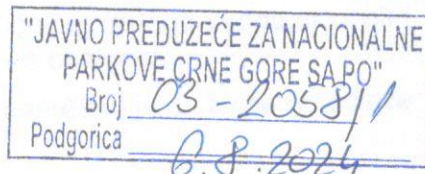 "JAVNO PREDUZEĆE ZA NACIONALNE
PARKOVE CRNE GORE SA PO"
Broj 03-2058/1
Podgorica 6.8.2024